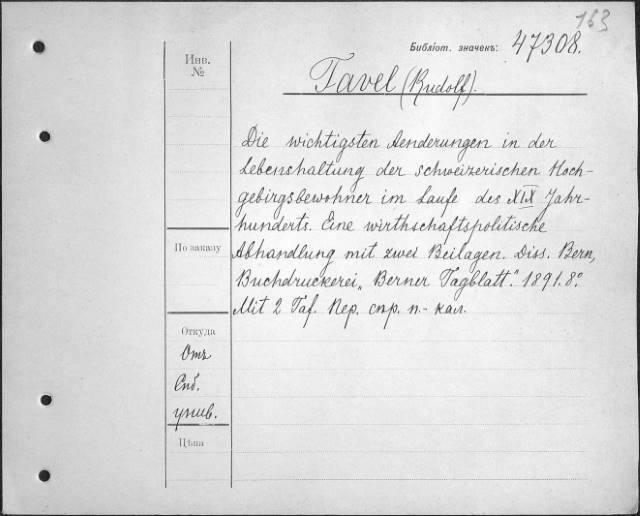 163
Библіот. значекъ: 47308.
Инв.
№
Tavel (Rudolf).
Die wichtigsten Aenderungen in der
Lebenshaltung der schweizerischen Hoch-
gebirgsbewohner im Laufe des XIX Jahr-
hunderts. Eine wirthschaftspolitische
Abhandlung mit zwei Beilagen. Diss. Bern,
Buchdruckerei „Berner Tagblatt". 1891. 8°.
Mit 2 Taf. Пер. спр. п.- кал.
По заказу
Откуда
Отъ
Спб.
унив.
Цѣна